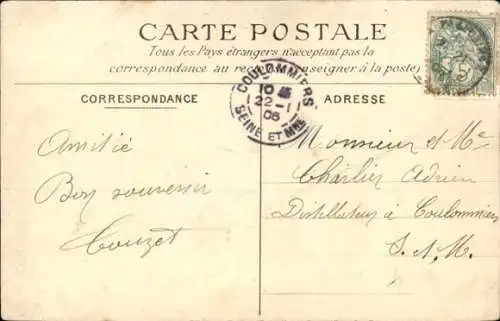 CARTE POSTALE
Tous les Pays étrangers n'acceptant pas la
correspondance au recto, renseigner à la poste
CORRESPONDANCE
ADRESSE
COULOMMIERS
10
22-1
06
SEINE ET MNE
5
Amitié
Bon souvenir
Touzet
Monsieur et Me
Charlier Adrien
Distillateur à Coulommiers
S. & M.